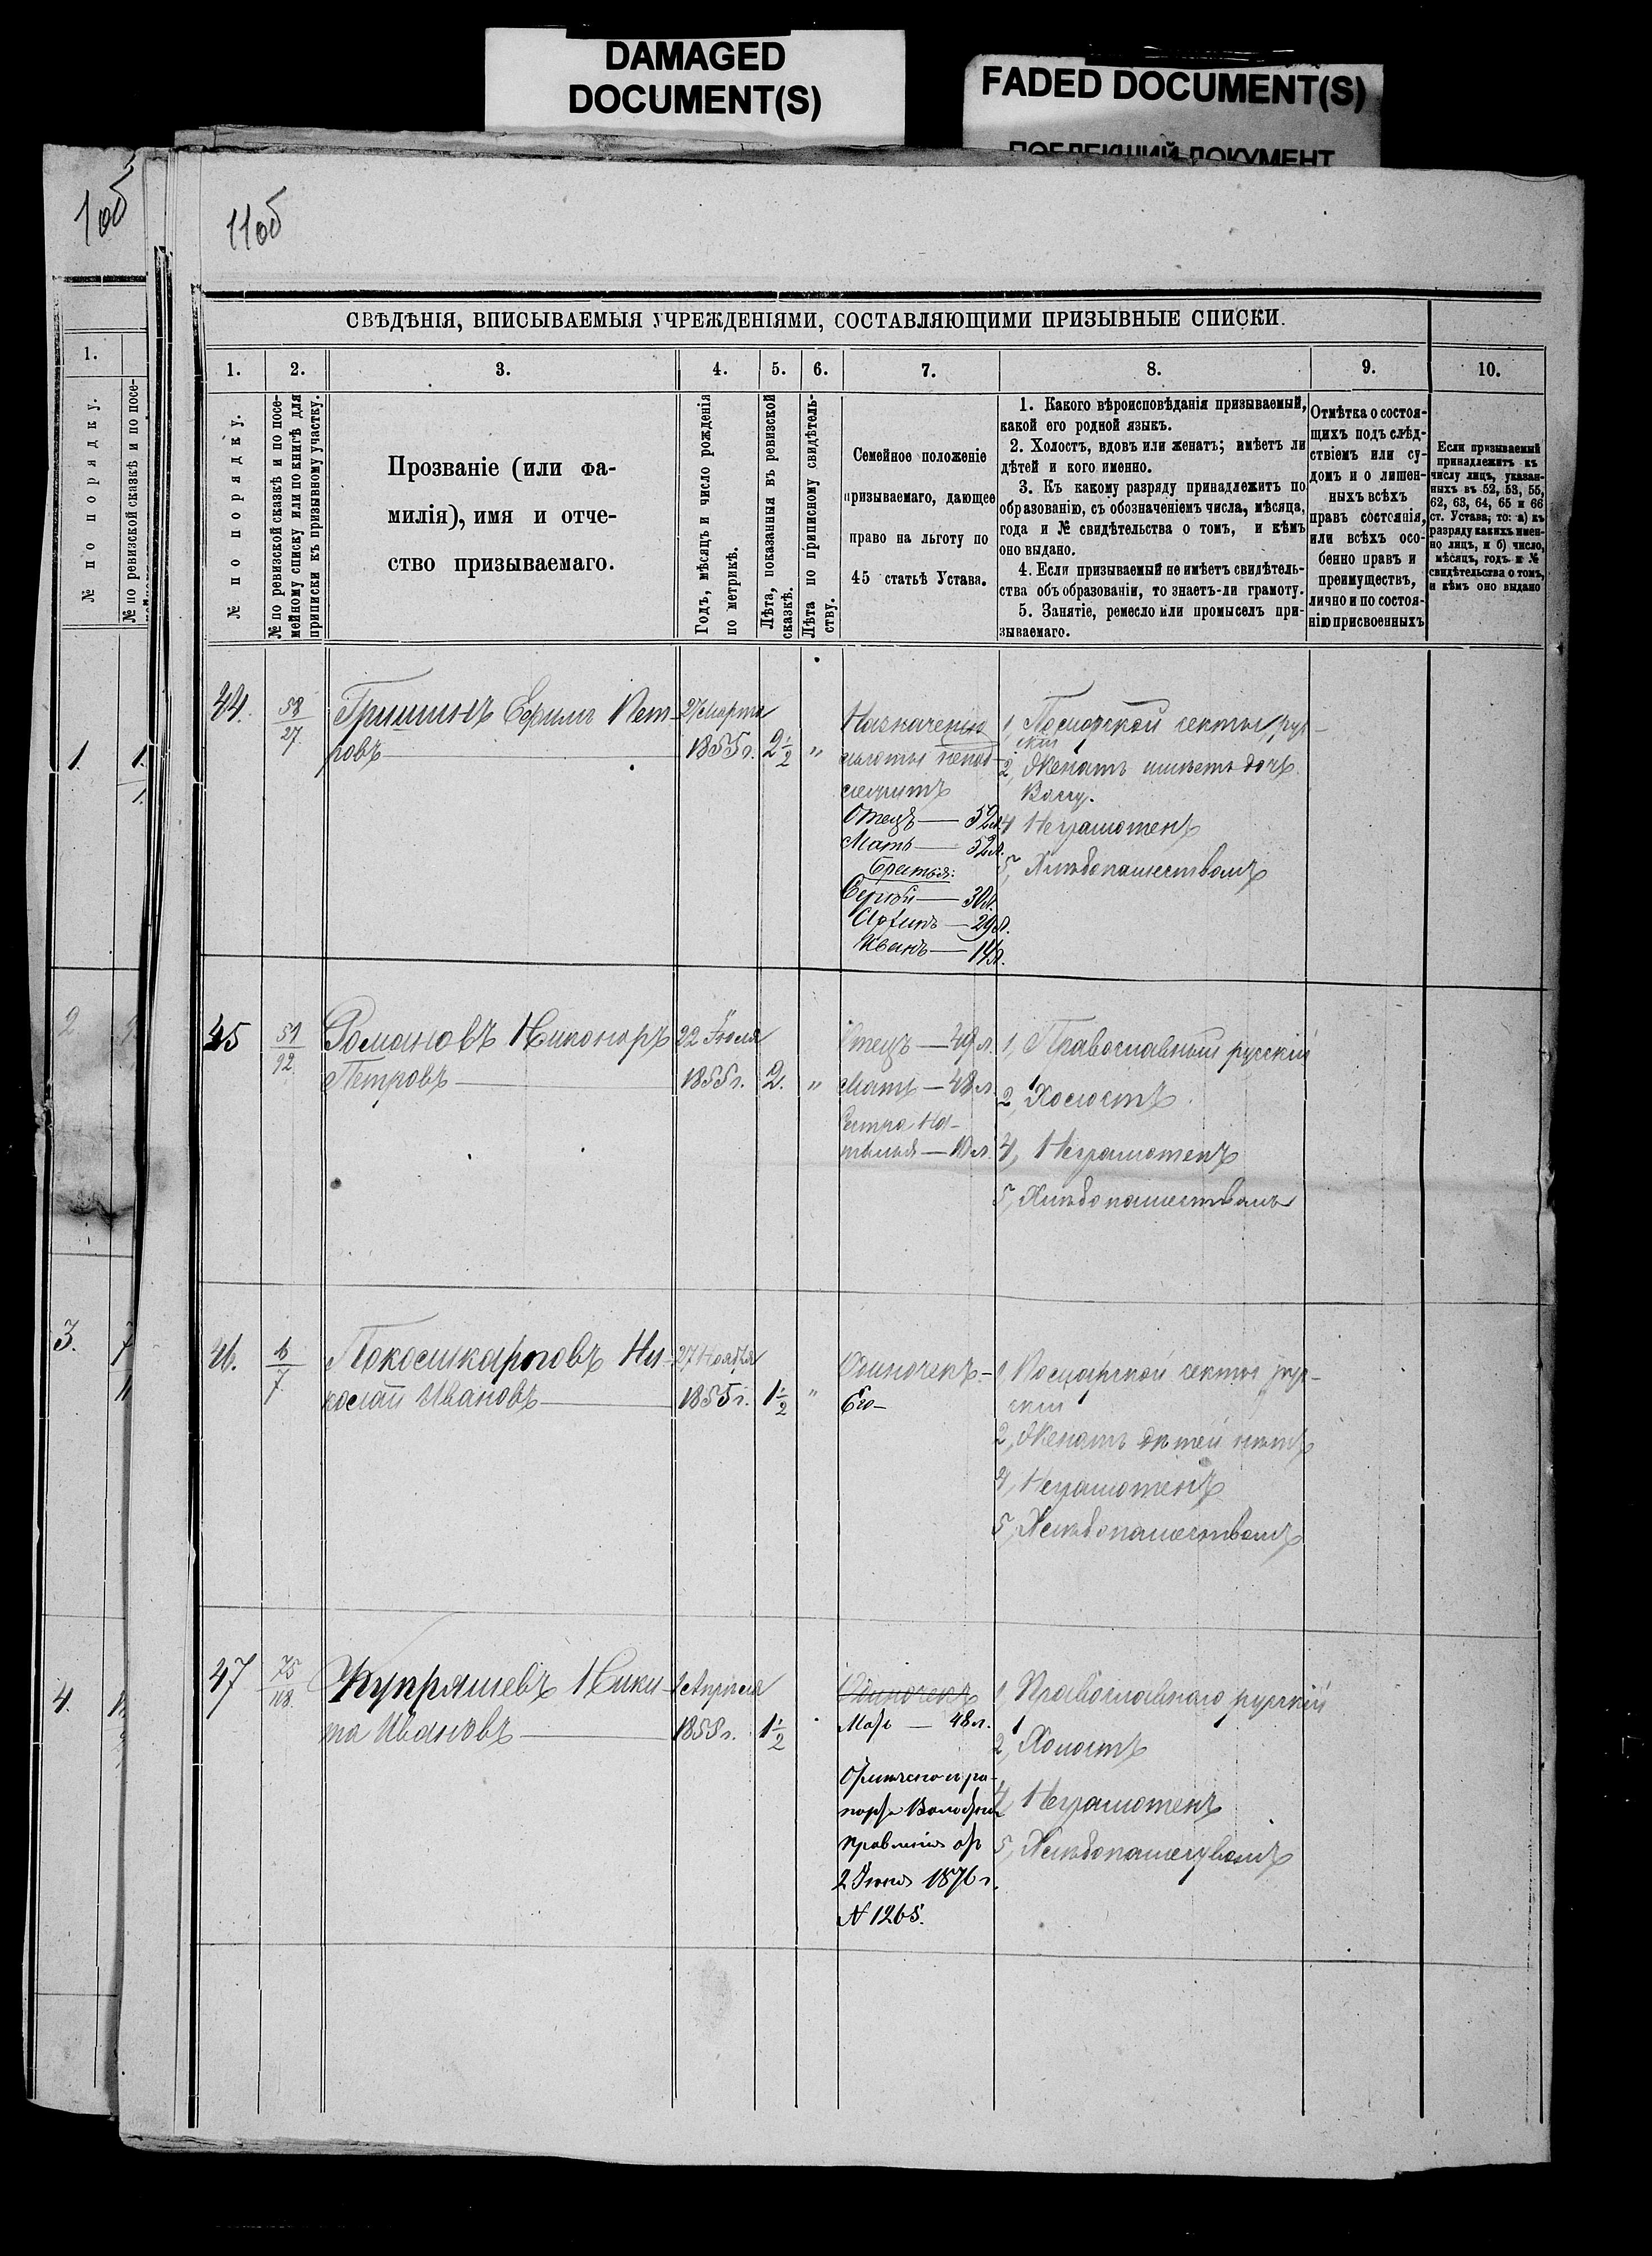 DAMAGED
DOCUMENT(S)
FADED DOCUMENT(S)
ПОБЛЕКШИЙ ДОКУМЕНТ
1об
11об
СВѢДѢНІЯ, ВПИСЫВАЕМЫЯ УЧРЕЖДЕНІЯМИ, СОСТАВЛЯЮЩИМИ ПРИЗЫВНЫЕ СПИСКИ.
1.
2.
3.
4.
5.
6.
7.
8.
9.
10.
№ по порядку.
№ по ревизской сказкѣ и по посе-
мейному списку или по книгѣ для
приписки къ призывному участку.
Прозваніе (или фа-
милія), имя и отче-
ство призываемаго.
Годъ, мѣсяцъ и число рожденія
по метрикѣ.
Лѣта, показанныя въ ревизской
сказкѣ.
Лѣта по приписному свидѣтель-
ству.
Семейное положеніе
призываемаго, дающее
право на льготу по
45 статьѣ Устава.
1. Какого вѣроисповѣданія призываемый,
какой его родной языкъ.
2. Холостъ, вдовъ или женатъ; имѣетъ ли
дѣтей и кого именно.
3. Къ какому разряду принадлежитъ по
образованію, съ обозначеніемъ числа, мѣсяца,
года и № свидѣтельства о томъ, и кѣмъ
оно выдано.
4. Если призываемый не имѣетъ свидѣтель-
ства объ образованіи, то знаетъ-ли грамоту.
5. Занятіе, ремесло или промыселъ при-
зываемаго.
Отмѣтка о состоя-
щихъ подъ слѣд-
ствіемъ или су-
домъ и о лишен-
ныхъ всѣхъ
правъ состоянія,
или всѣхъ осо-
бенно правъ и
преимуществъ,
лично и по состоя-
нію присвоенныхъ
Если призываемый
принадлежитъ къ
числу лицъ, указан-
ныхъ въ 52, 53, 55,
62, 63, 64, 65 и 66
ст. Устава, то: а) къ
разряду какихъ имен-
но лицъ, и б) число,
мѣсяцъ, годъ и №
свидѣтельства о томъ,
и кѣмъ оно выдано
1.
№ по порядку.
№ по ревизской сказкѣ и по посе-
1.
2
3.
4.
44.
58
27
Гришинъ Ефимъ Пет-
ровъ
27 Марта
1855 г.
2 1/2
"
Назначенію
льготы непод-
лежитъ
Отецъ — 52 л.
Мать — 52 л.
Братья:
Сергѣй — 30 л.
Иванъ — 14 л.
1, Поморской секты рус-
скій
2, Женатъ имѣетъ дочь
Вассу.
4 Неграмотенъ
5, Хлѣбопашествомъ
45
51
92
Романовъ Никаноръ
Петровъ
22 Іюля
1855 г.
2.
"
Отецъ — 49 л.
Мать — 48 л.
Сестра На-
талья — 10 л.
1, Православный русскій
2, Холостъ
4, Неграмотенъ
5, Хлѣбопашествомъ
46.
6
7
Ни-
колай Ивановъ
27 Ноября
1855 г.
1 1/2
"
Одиночекъ-
1, Поморской секты рус-
скій
2, Женатъ дѣтей нѣтъ
4, Неграмотенъ
5, Хлѣбопашествомъ
47
75
118
Купряшевъ Ники-
та Ивановъ
1 Апрѣля
1855 г.
1 1/2
Одиночекъ
Мать — 48 л.
Отмѣчено из ра-
порта Волостнаго
Правленія от
2 Іюня 1876 г.
N 1265.
1, Православнаго русскій
2, Холостъ
4, Неграмотенъ
5, Хлѣбопашествомъ